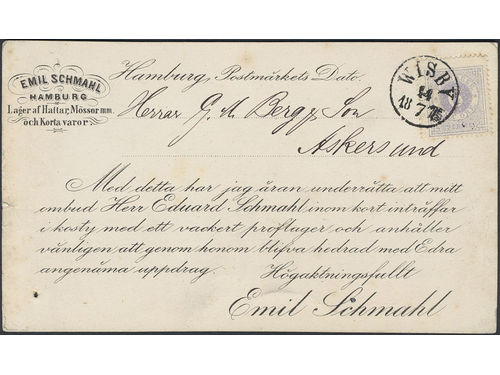 EMIL SCHMAHL
HAMBURG
Lager af Hattar, Mössor mm.
och Korta varor
Hamburg, Postmärkets Dato.
WISBY
14
18 7 75
Herrar G. A. Berg & Son
Askersund
Med detta har jag äran underrätta att mitt
ombud Herr Eduard Schmahl inom kort inträffar
i kosty med ett vackert proflager och anhåller
vänligen att genom honom blifva hedrad med Edra
angenäma uppdrag.
Högaktningsfullt
Emil Schmahl